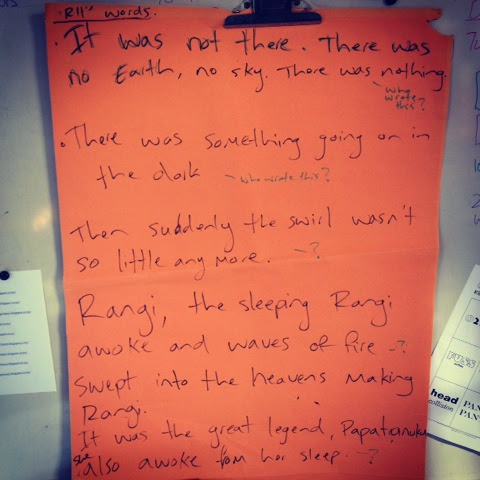 "R11" words.
· It was not there. There was
no Earth, no sky. There was nothing.
~ who wrote this?
· There was something going on in
the dark ~ who wrote this?
Then suddenly the swirl wasn't
so little any more. ~?
Rangi, the sleeping Rangi
awoke and waves of fire ~?
swept into the heavens making
Rangi.
It was the great legend, Papatuanuku
she also awoke from her sleep. ~?
head
collision
PAN
PAN